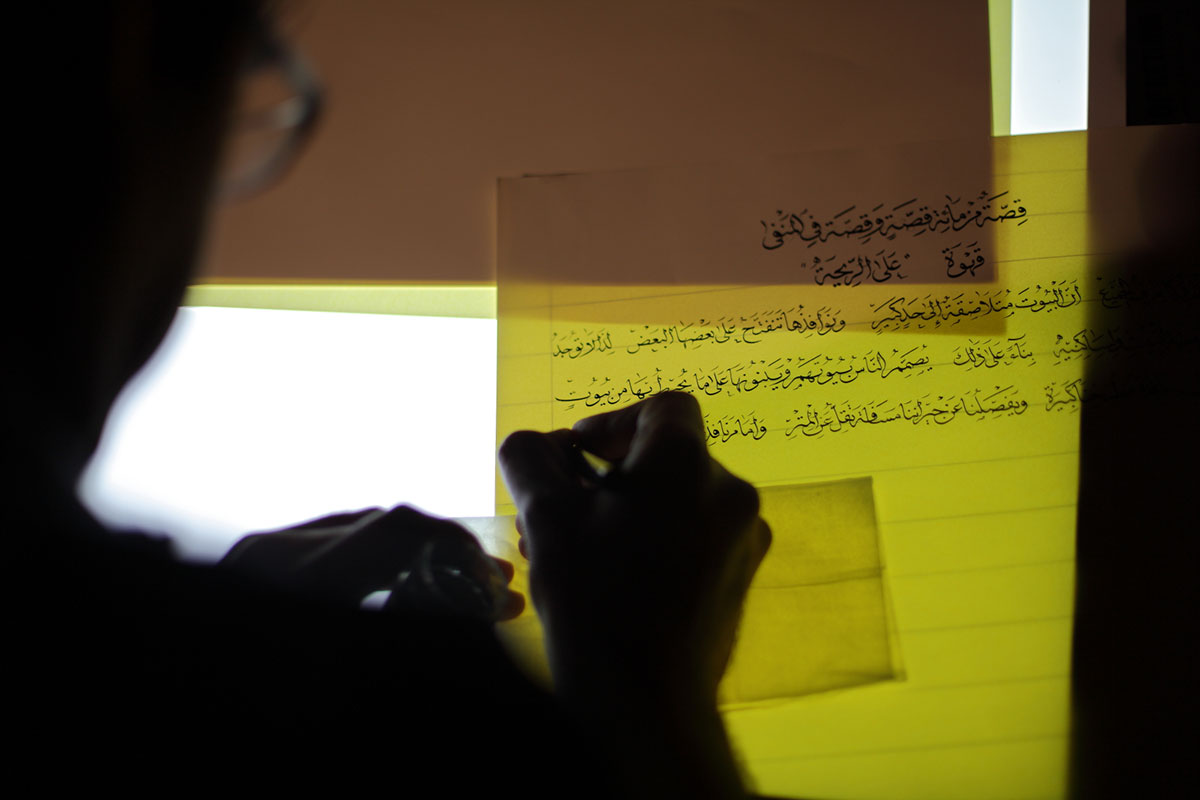 قِصّة من مائة قِصّةٍ وَقِصّة في المنفى
قَهْوَة "عَلَى الرِّيحَة"
أنّ البُيُوتَ مُتَلَاصِقَةٌ إلى حَدٍ كَبِيرٍ وَنَوَافِذُهَا تَنْفَتِحُ عَلَى بَعْضِهَا البَعْضْ لِذَا لَا تُوجَدُ
بِنَاءً عَلى ذَلِكَ يُصَمِّمُ النَّاسُ بُيُوتَهُمْ وَيَبْنُونَهَا عَلى مَا يُحِيطُ بِهَا مِن بُيُوتٍ
كَبِيرَة وَيَفْصِلُنَا عَن جِيرَانِنَا مَسَافَة تَقِلُّ عَن المِتْر وَأَمَامَ